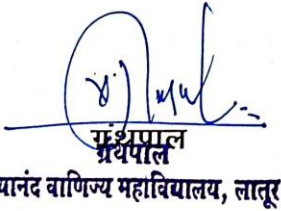 ग्रंथपाल
ग्रंथपाल
यानंद वाणिज्य महाविद्यालय, लातूर